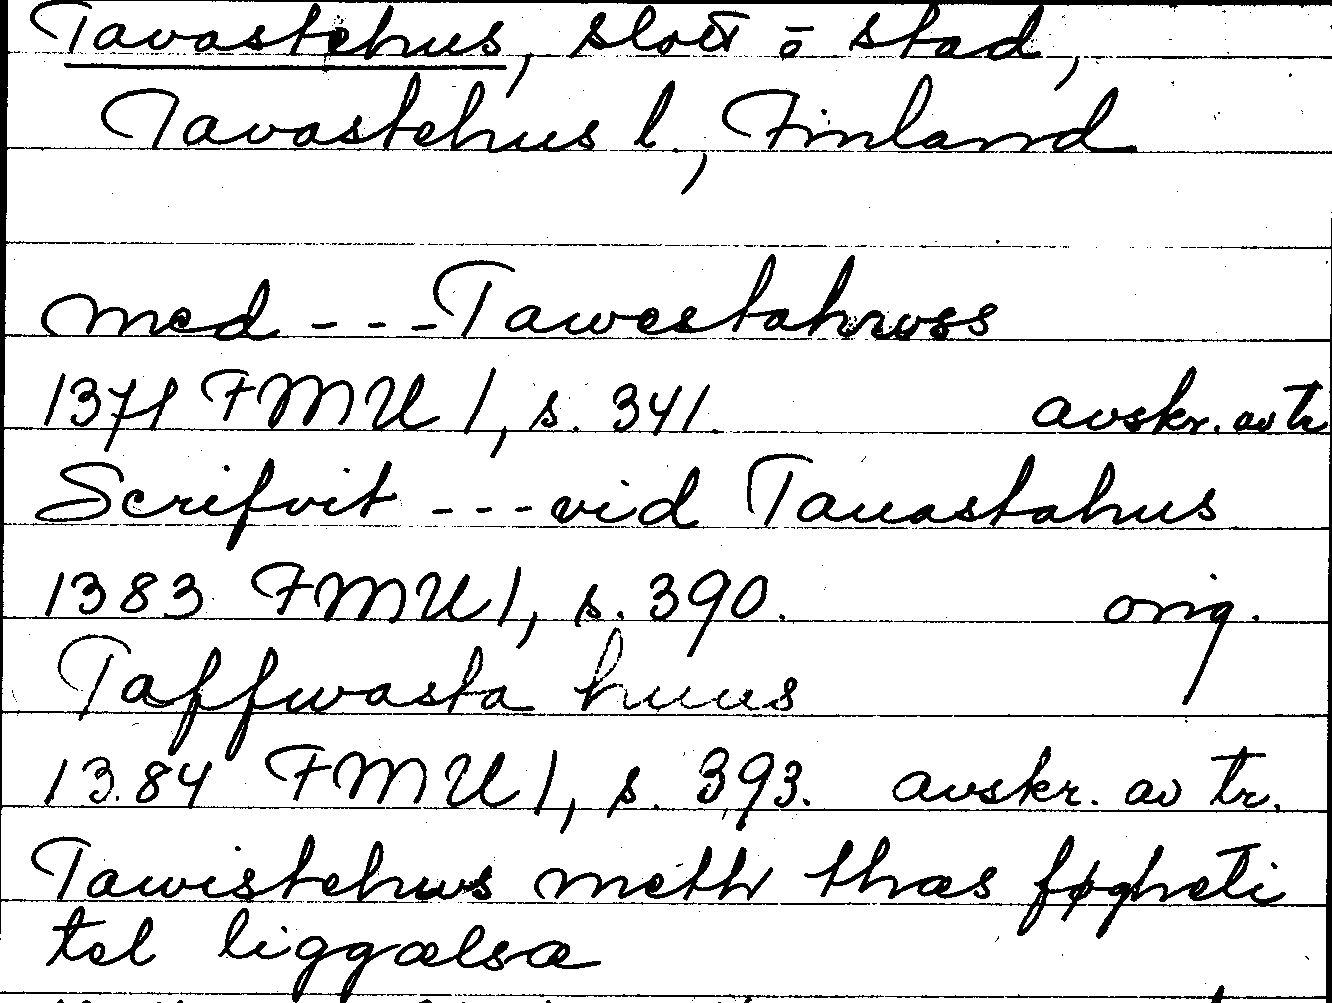 Tavastehus, slott ō stad,
Tavastehus l., Finland
med - - - Tawestahwss
1371 FMU 1, s. 341. avskr. av tr
Scrifvit - - - vid Tauastahus
1383 FMU 1, s. 390. orig.
Taffwasta huus
1384 FMU 1, s. 393. avskr. av tr.
Tawistehws meth thæs føgheti
tel liggælsæ